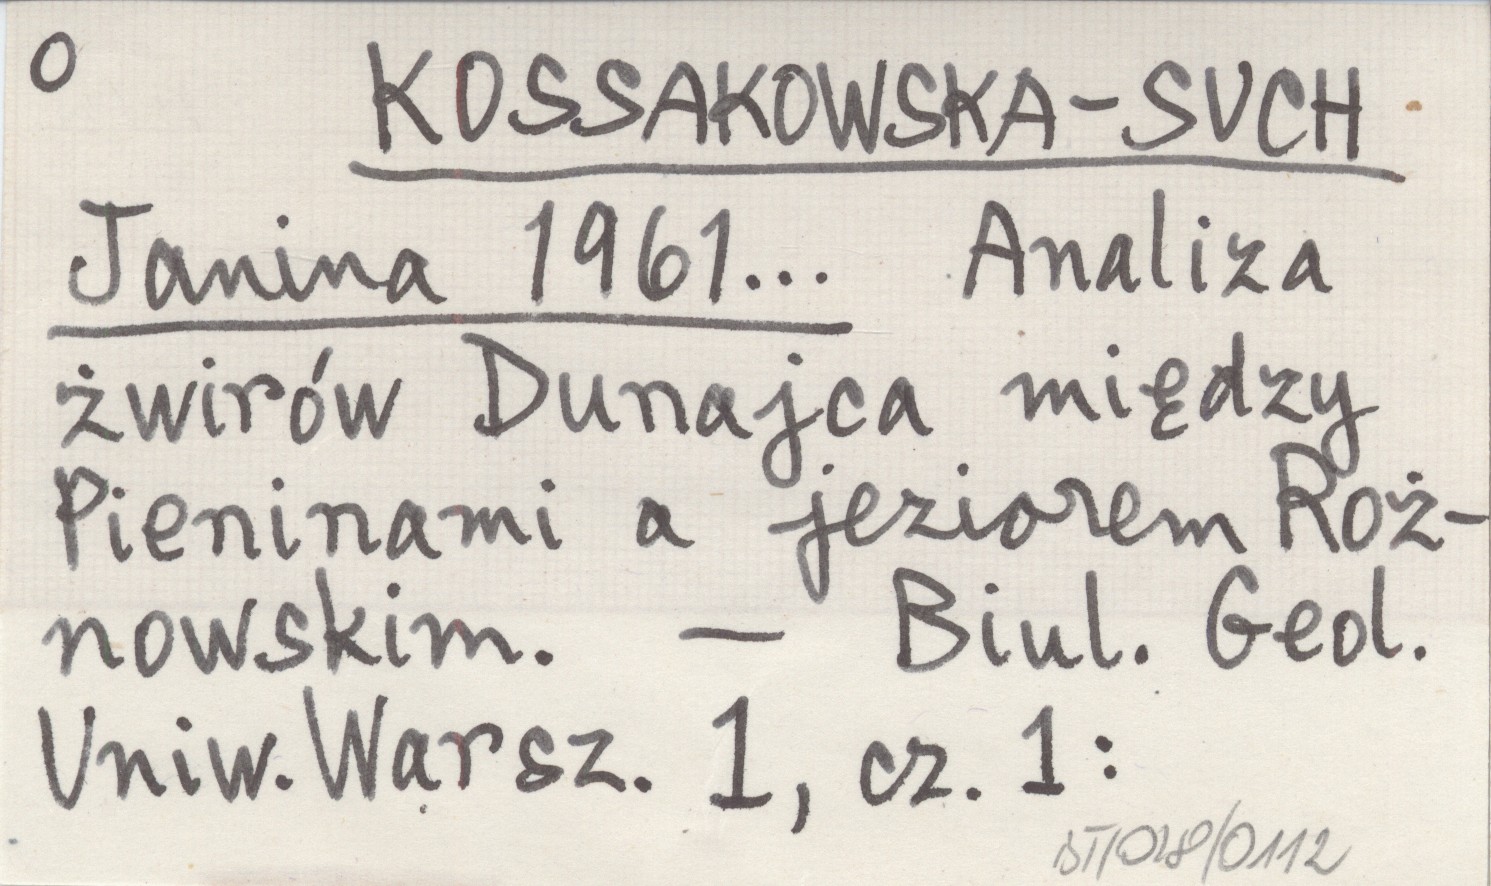 O KOSSAKOWSKA-SUCH
Janina 1961... Analiza
żwirów Dunajca między
Pieninami a jeziorem Roż-
nowskim. — Biul. Geol.
Uniw. Warsz. 1, cz. 1:
BT/028/0112